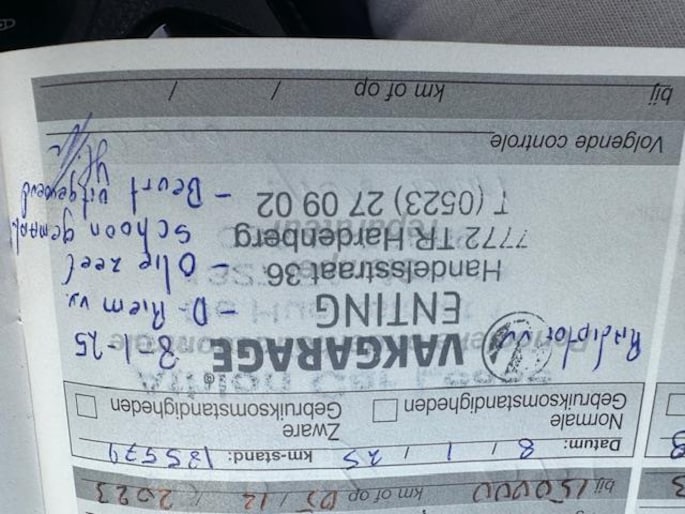 bij 150000 km of op 05 / 12 / 2023
Datum: 8 / 1 / 25 km-stand: 185579
Normale Gebruiksomstandigheden
Zware Gebruiksomstandigheden
Radiator vv
VAKGARAGE
ENTING
Handelsstraat 36
7772 TR Hardenberg
T (0523) 27 09 02
8-1-25
- D-Riem vv.
- Olie zeef
schoon gemaakt
- Beurt uitgevoerd
Volgende controle
bij km of op / /